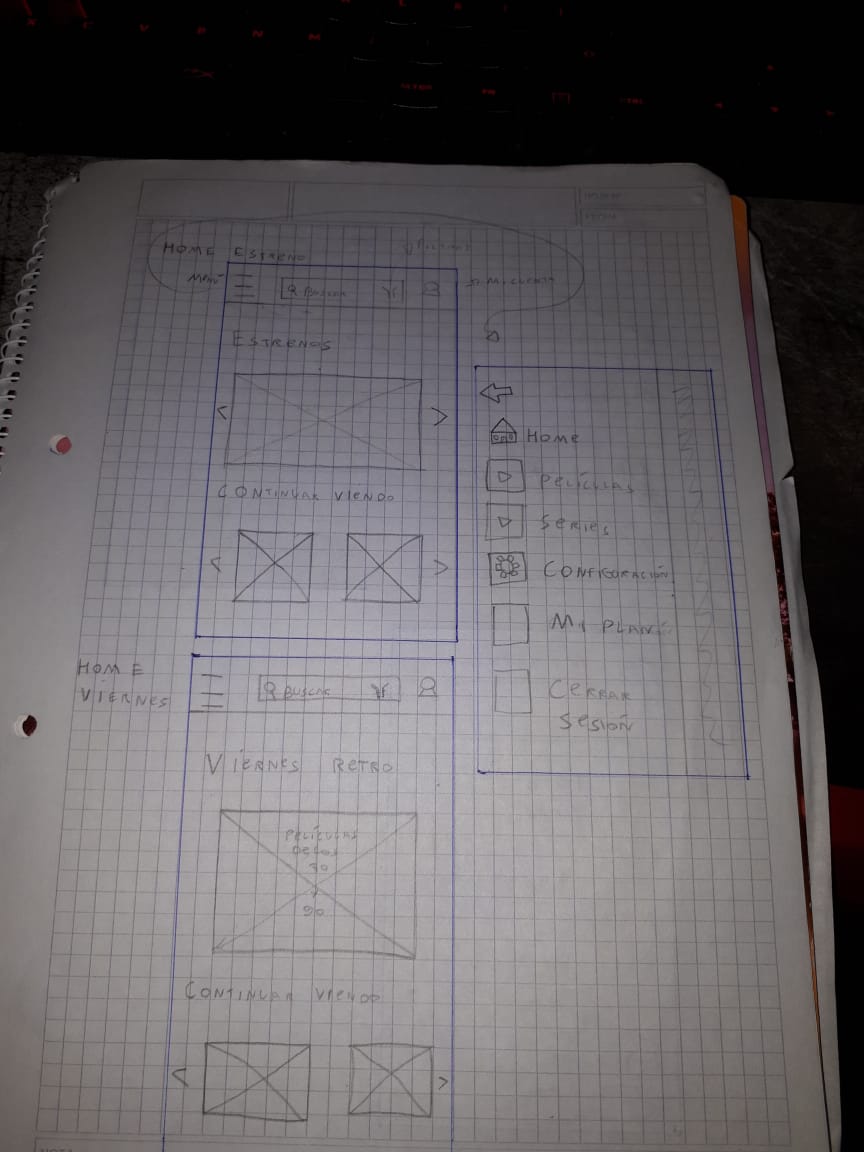 HOME ESTRENO
MENÚ
BUSCAR
MI CUENTA
ESTRENOS
CONTINUAR VIENDO
HOME
PELÍCULAS
SERIES
CONFIGURACIÓN
MI PLAN
CERRAR
SESIÓN
HOME
VIERNES
BUSCAR
VIERNES RETRO
PELÍCULAS
DE LOS
70
Y
90
CONTINUAR VIENDO